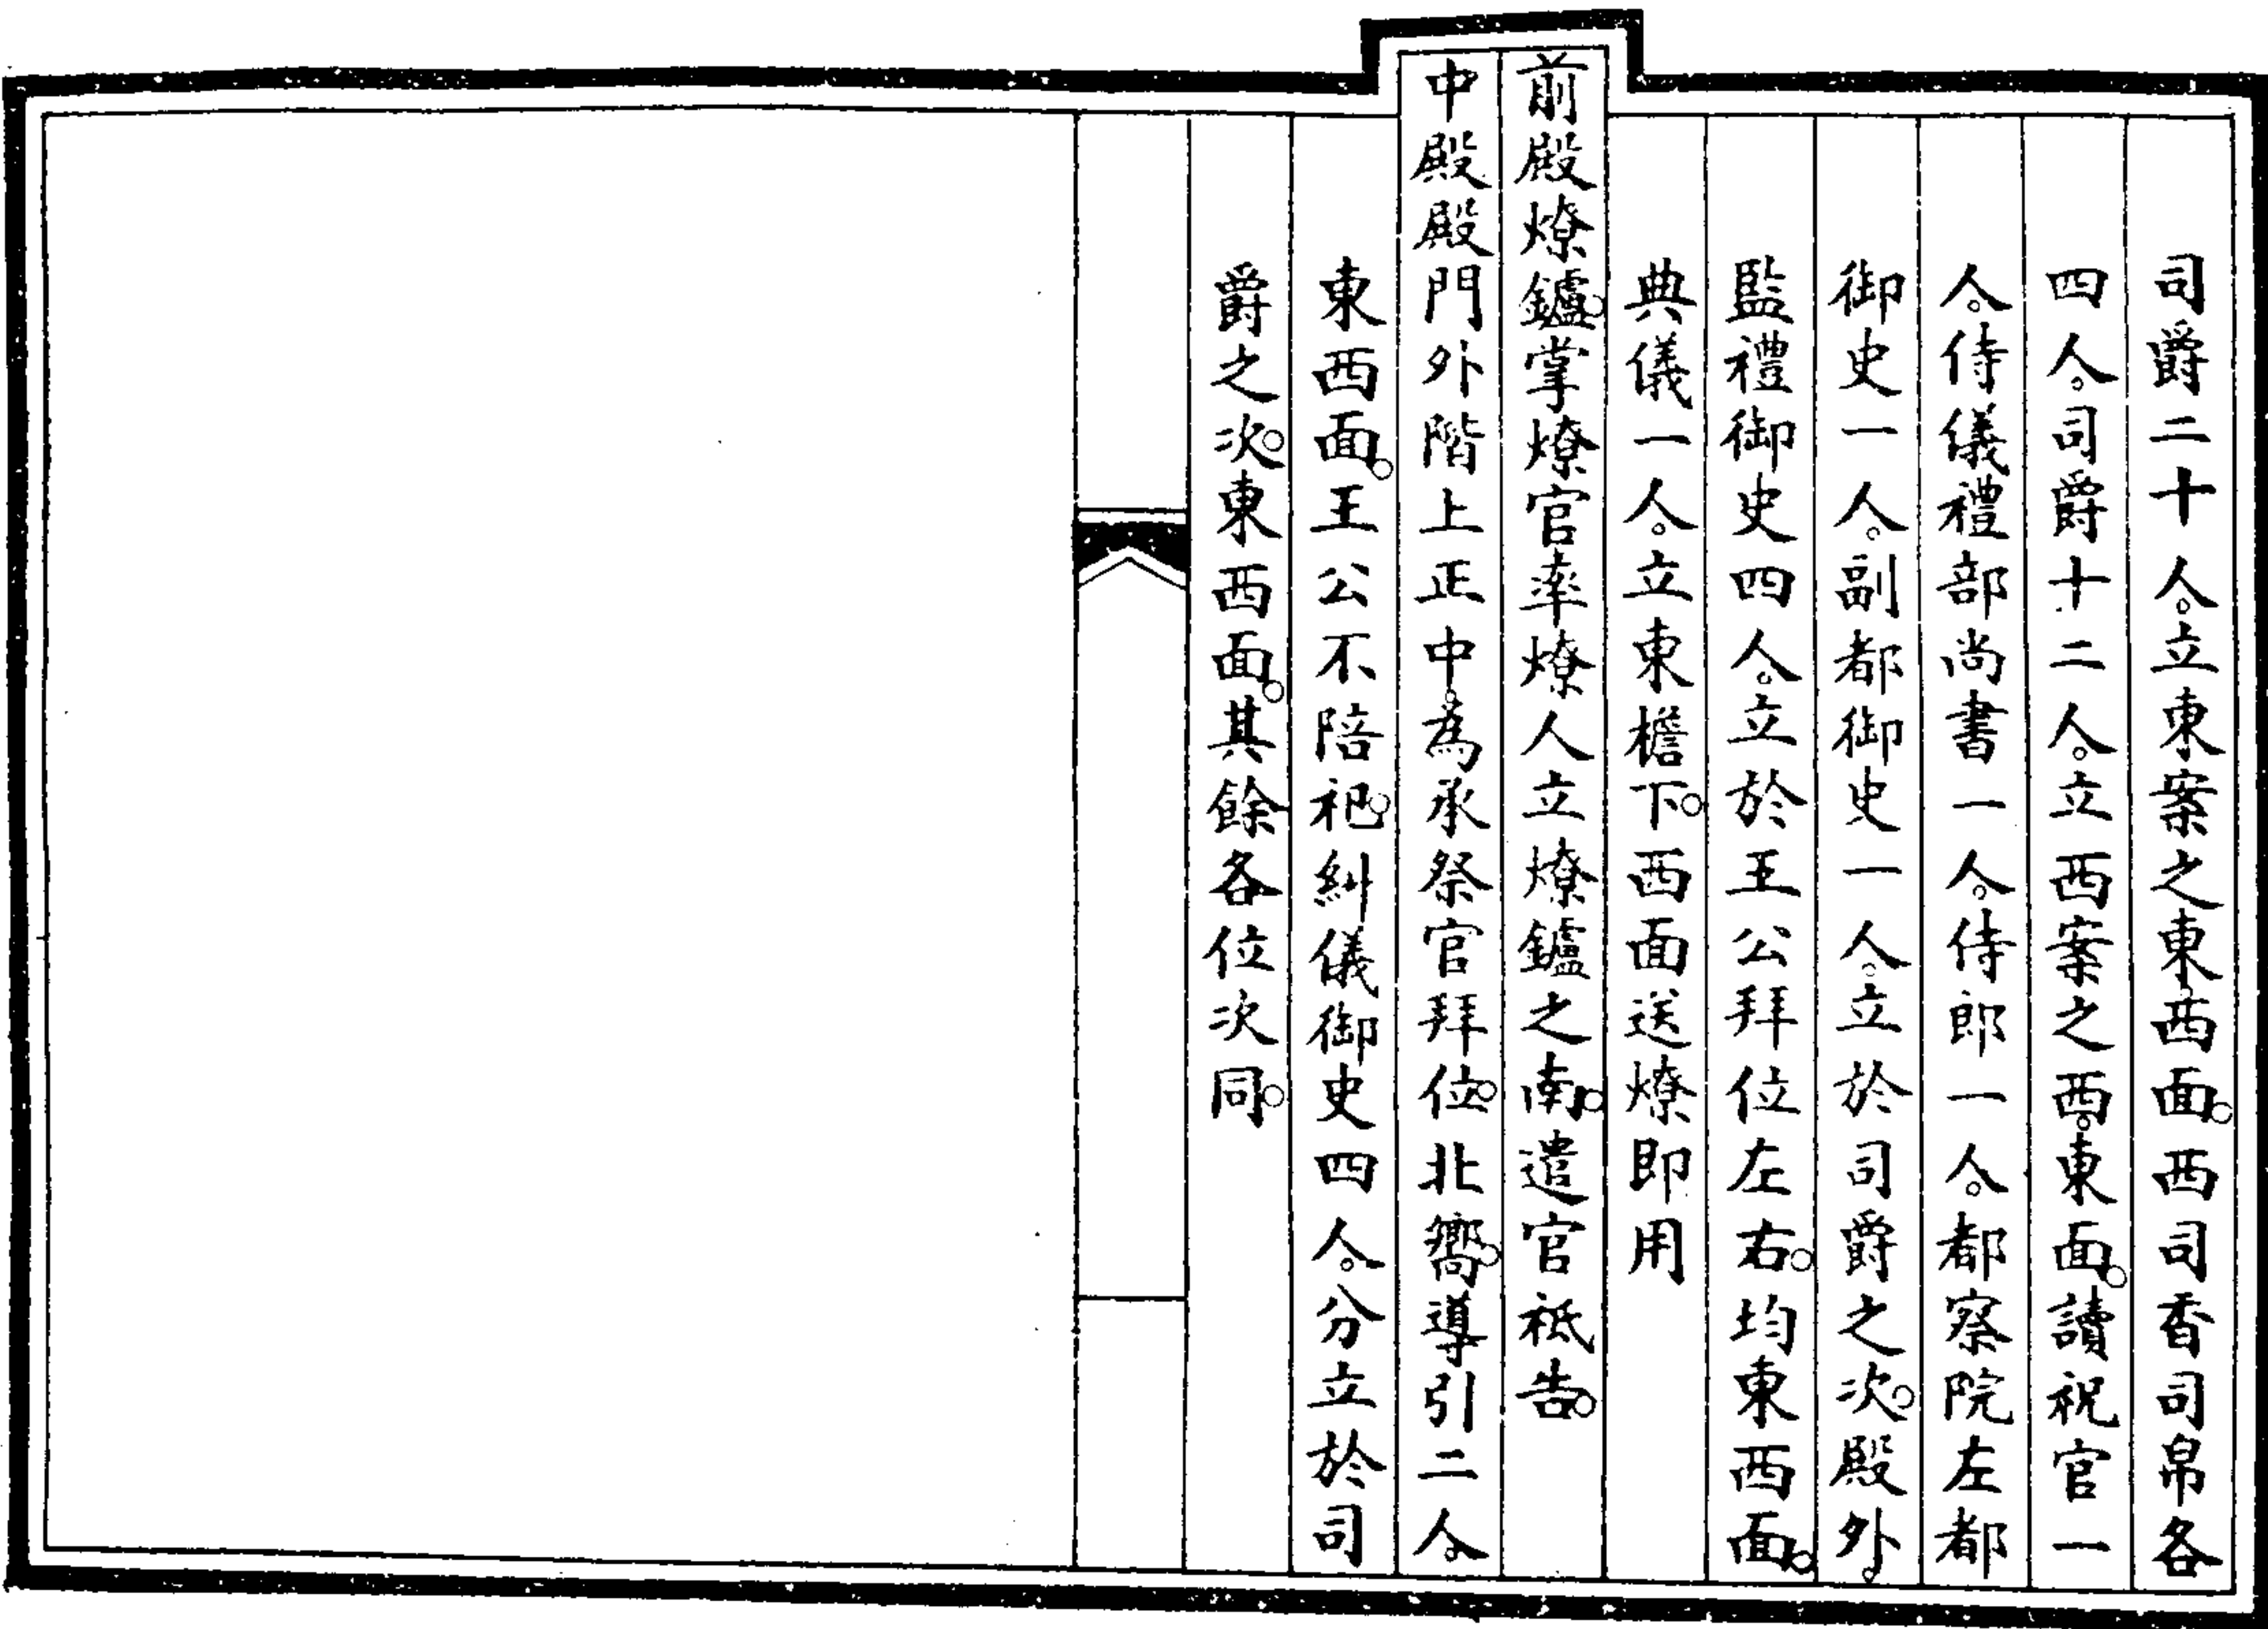 司爵二十人。立東案之東。西面。西司香司帛各
四人。司爵十二人。立西案之西。東面。讀祝官一
人。侍儀禮部尚書一人。侍郎一人。都察院左都
御史一人。副都御史一人。立於司爵之次。殿外。
監禮御史四人。立於王公拜位左右。均東西面。
典儀一人。立東檐下。西面送燎即用
前殿燎鑪。掌燎官率燎人立燎鑪之南。遣官祗告。
中殿殿門外階上正中。為承祭官拜位。北嚮。導引二人。
東西面。王公不陪祀。糾儀御史四人。分立於司
爵之次。東西面。其餘各位次同。